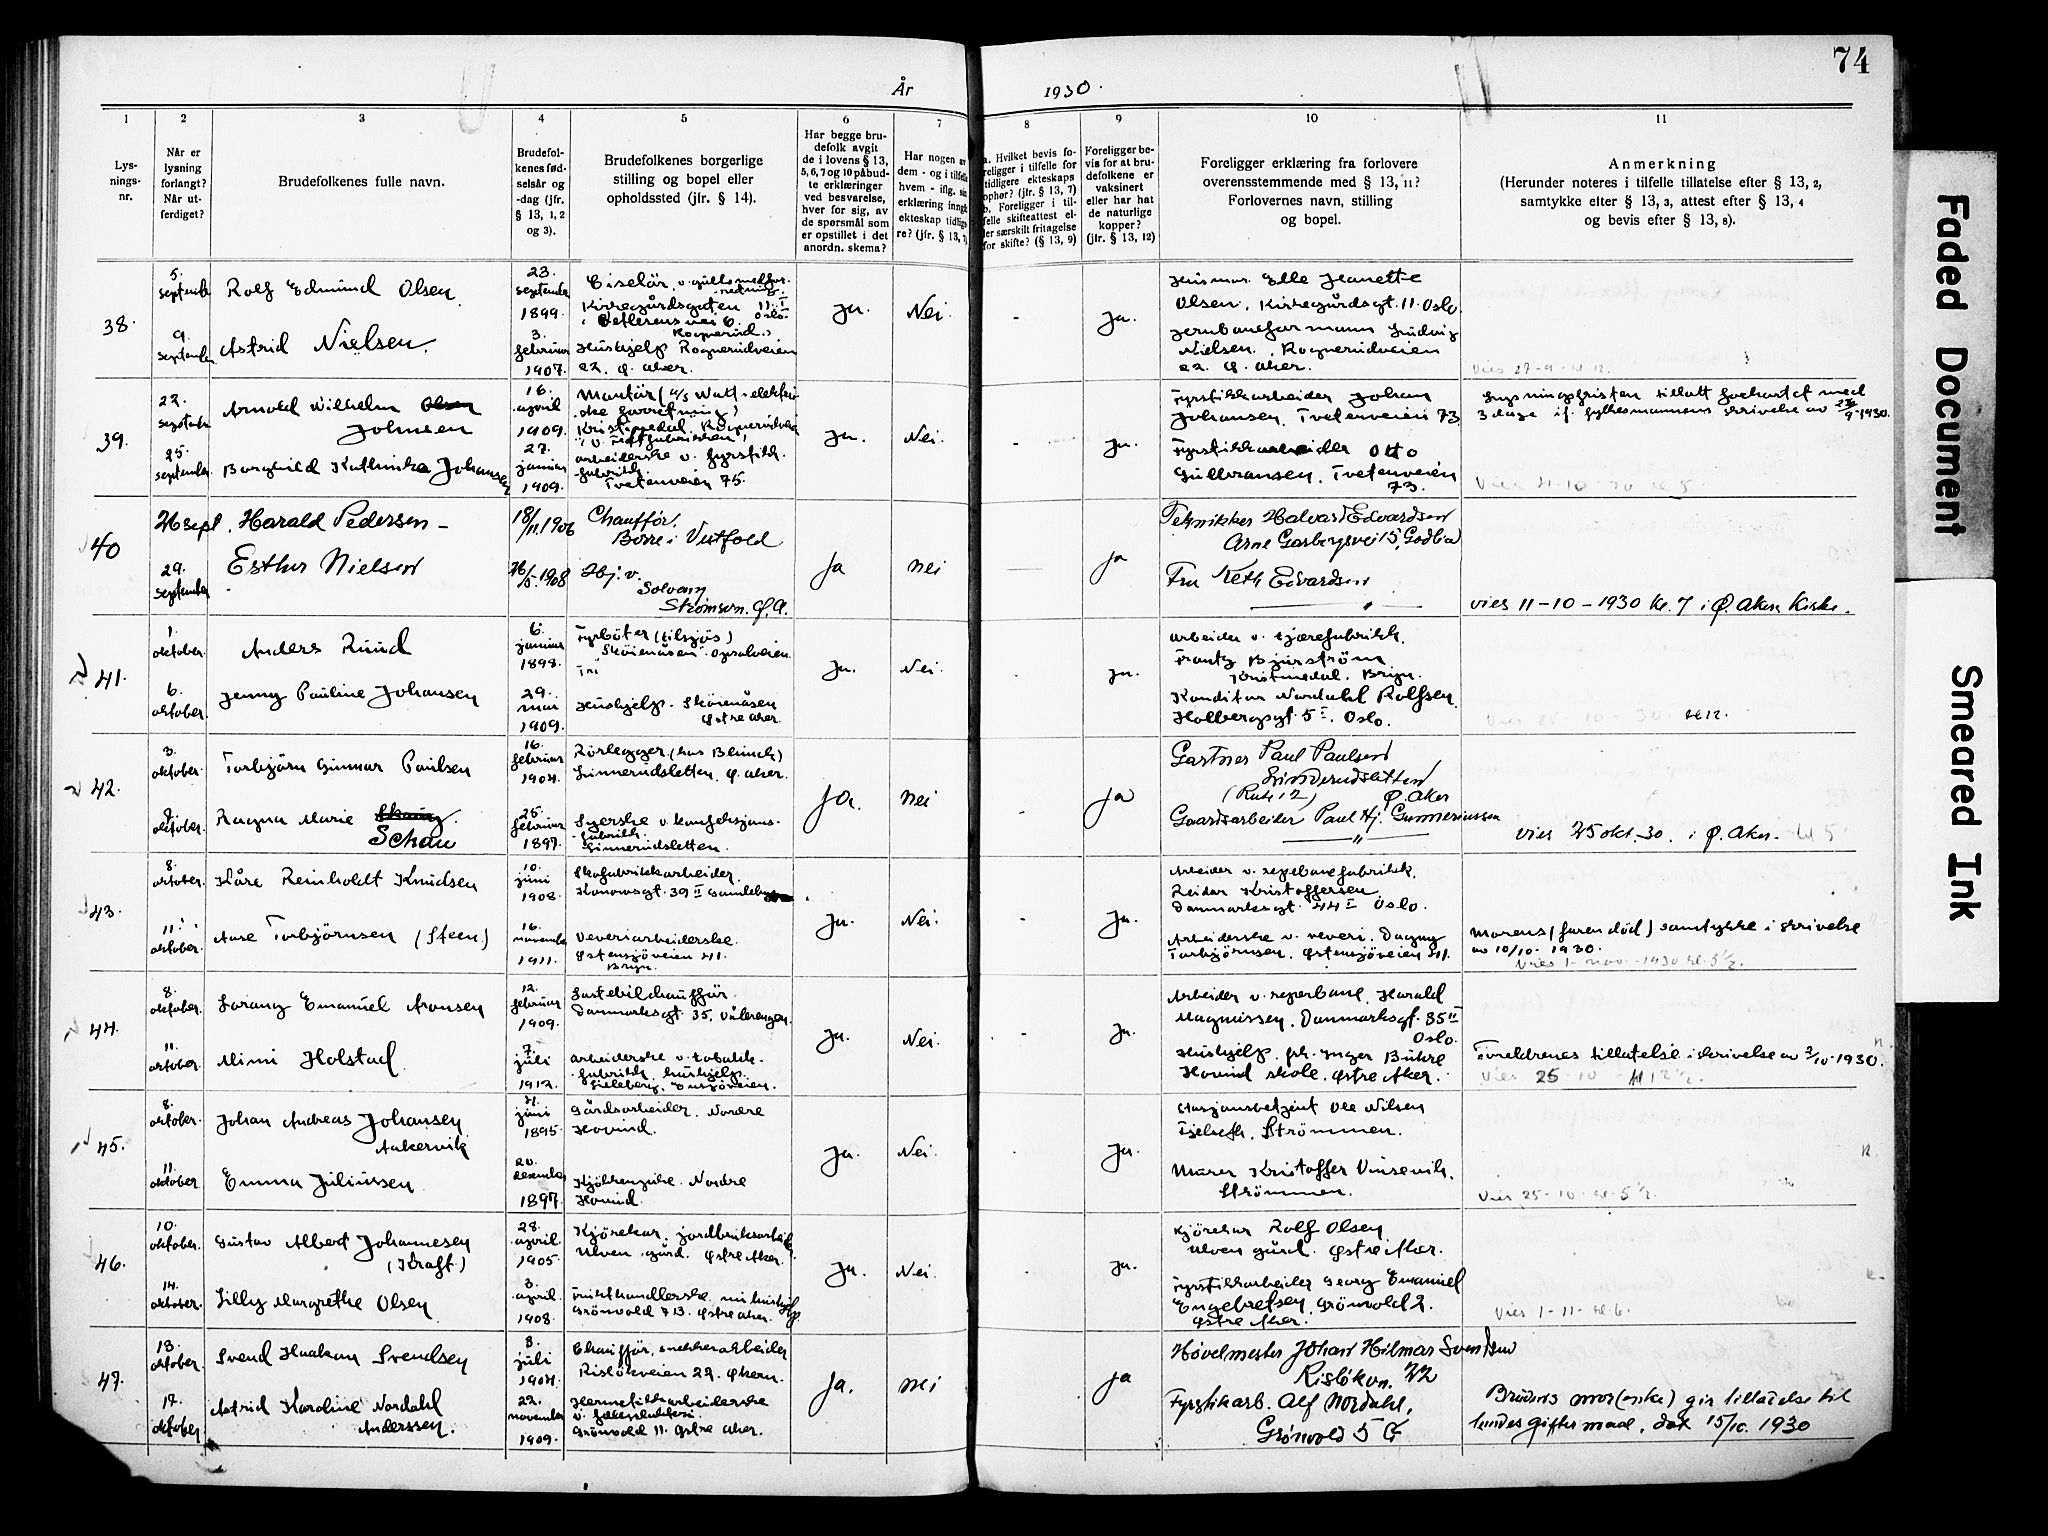 74
År 1930.
1 2 3 4 5 6 7 8 9 10 11
Lys-
nings-
nr.
Når er
lysning
forlangt?
Når ut-
ferdiget?
Brudefolkenes fulle navn.
Brudefol-
kenes fød-
selsår og
-dag (jfr.
§ 13, 1, 2
og 3).
Brudefolkenes borgerlige
stilling og bopel eller
opholdssted (jfr. § 14).
Har begge bru-
defolk avgit
de i lovens § 13,
5, 6, 7 og 10 påbud-
te erklæringer
ved besvarelse,
hver for sig, av
de spørsmål som
er opstillet i det
anordn. skema?
Har nogen av
dem - og i tilfelle
hvem - iflg. sin
erklæring inngåt
ekteskap tidlige-
re? (jfr. § 13, 7)
a. Hvilket bevis fo-
religger i tilfelle for
tidligere ekteskaps
ophør? (jfr. § 13, 7)
b. Foreligger i til-
felle skifteattest el-
ler særskilt fritagelse
for skifte? (§ 13, 9)
Foreligger be-
vis for at bru-
defolkene er
vaksinert
eller har hat
de naturlige
kopper?
(jfr. § 13, 12)
Foreligger erklæring fra forlovere
overensstemmende med § 13, 11?
Forlovernes navn, stilling
og bopel.
Anmerkning
(Herunder noteres i tilfelle tillatelse efter § 13, 2,
samtykke efter § 13, 3, attest efter § 13, 4
og bevis efter § 13, 8).
38.
5.
september
9.
september
Rolf Edmund Olsen.
Astrid Nielsen.
23.
september
1899.
3.
februar
1907.
Kirkegårdsgaten 11.
Hushjelp Rognerudveien
22. Ø. Aker.
Ja. Nei - Ja.
Husmor Elle Jeanette
Olsen, Kirkegårdsgt. 11. Oslo.
Jernbaneformann Ludvig
Nielsen. Rognerudveien
22. Ø. Aker.
Vies 27-9- kl 12.
39.
22.
september
25.
september
Arnold Wilhelm Olsen
Johnsen
Borghild Kathinka Johansen
16.
april
1909.
27.
januar
1909.
Montør (A/S Watt-elektri-
ske forretning)
arbeiderske v. fyrstikk-
fabrikk.
Tvetenveien 75.
Ja. Nei. - Ja.
Fyrstikkarbeider Johan
Johansen, Tvetenveien 73
Fyrstikkarbeider Otto
Gulbransen. Tvetenveien
73.
Lysningsfristen tillatt forkortet med
3 dage if. fylkesmannens skrivelse av 1930.
40
26 sept.
29.
september
Harald Pedersen -
Esther Nielsen
18/11.1906
26/5.1908
Chauffør.
Borre i Vestfold
Hj. v.
Solvang
Strømsvn. Ø.A.
Ja nei — ja
Tekniker Halvard Edvardsen
Arne Garborgsvei 15, Godlia
Fru Keth Edvardsen
— " —
vies 11-10-1930 kl. 7 i Ø. Aker Kirke.
41.
1.
oktober
6.
oktober.
Anders Ruud
Jenny Pauline Johansen
6.
januar
1898.
29.
mai
1909.
Fyrbøter (tilsjøs)
"Skøienåsen" Opsalveien.
Hushjelp. Skøienåsen
Østre Aker.
Ja. Nei. ja.
Arbeider v. tjærefabrikk.
Frantz Bjurström
Kristinedal. Bryn.
Konditor Nordahl Rolfsen
Holbergsgt. 5 I. Oslo.
Vies 25-10-30. kl 12.
42.
3.
oktober.
9.
oktober.
Torbjørn Gunnar Paulsen
Ragna Marie Skaug.
Schau
16.
februar
1904.
25.
februar
1897.
Rørlegger (hos Blunck)
Linnerudsletten. Ø. Aker.
Syerske v. konfeksjons-
fabrikk.
Linnerudsletten.
Ja. nei - ja
Gartner Paul Paulsen
Linderudsletten
(Rute 12) Ø. Aker
Gaardsarbeider Paul Hj. Gunneriussen
— " —
vies 25 okt. 30. i Ø. Aker. kl 5
43.
8.
oktober.
11.
oktober.
Kåre Reinholdt Knudsen
Aase Torbjørnsen (Steen)
10.
juni
1908.
16.
november
1911.
Skofabrikkarbeider.
Konowsgt. 39 II Gamlebyen
Veveriarbeiderske.
Østensjøveien 41.
Bryn.
Ja. Nei. - Ja.
Arbeider v. repebanefabrikk.
Reidar Kristoffersen
Danmarksgt. 44 I Oslo.
Arbeiderske v. veveri. Dagny
Torbjørnsen. Østensjøveien 41.
Morens (faren død) samtykke i skrivelse
av 10/10-1930.
Vies 1-nov-1930 kl. 5½.
44.
8.
oktober.
11.
oktober.
Lorang Emanuel Aronsen
Mimi Holstad
12.
februar
1909.
7.
juli
1912.
Lastebilchauffør.
Danmarksgt. 35. Vålerengen.
arbeiderske v. tobakk-
fabrikk. hushjelp.
Ja. Nei. - Ja.
Arbeider v. reperbane. Harald
Magnussen. Danmarksgt. 35 II
Oslo.
Hushjelp. frk. Inger Buhre
Hovind skole. Østre Aker.
Foreldrenes tillatelse i skrivelse av 2/10-1930.
Vies 25-10- kl 12½.
45.
8.
oktober
11.
oktober
Johan Andreas Johansen
Aakervik
Emma Juliussen
21.
juni
1895.
20.
desember
1897.
Gårdsarbeider. Nordre
Hovind.
Kjøkkenpike. Nordre
Hovind.
Ja. Nei. - Ja.
Stasjonsbetjent Ole Nilsen
Strømmen.
Murer Kristoffer Vinsevik.
Strømmen.
Vies 25-10- kl. 5½.
46.
10.
oktober.
14.
oktober.
Gustav Albert Johannesen
(Kraft)
Lilly Margrethe Olsen
28.
april
1905.
3.
april
1908.
Kjørekar, jordbruksarbeider
Ulven gård. Østre Aker.
Grönvold 713. Østre Aker.
Ja. Nei. - Ja.
Kjørekar Rolf Olsen
Ulven gård. Østre Aker.
Fyrstikkarbeider Georg Emanuel
Engebretsen, Grönvold 2.
Østre Aker.
Vies 1-11- kl. 6.
47.
13.
oktober
17.
oktober
Svend Haakon Svendsen
Astrid Karoline Nordahl
Anderssen.
8.
juli
1904.
22.
november
1909.
Chauffør, snekkerarbeider
Risløkveien 22. Økern.
Hermetikkarbeiderske
Grönvold 11. Østre Aker.
Ja. nei ja
Høvelmester Johan Hilmar Svendsen
Risløkvn. 22
Fyrstikarb. Alf Nordahl,
Grønvold 5
Brudens mor (enke) gir tillatelse til
hendes giftermaal, dat 15/10. 1930
Faded Document
Smeared Ink